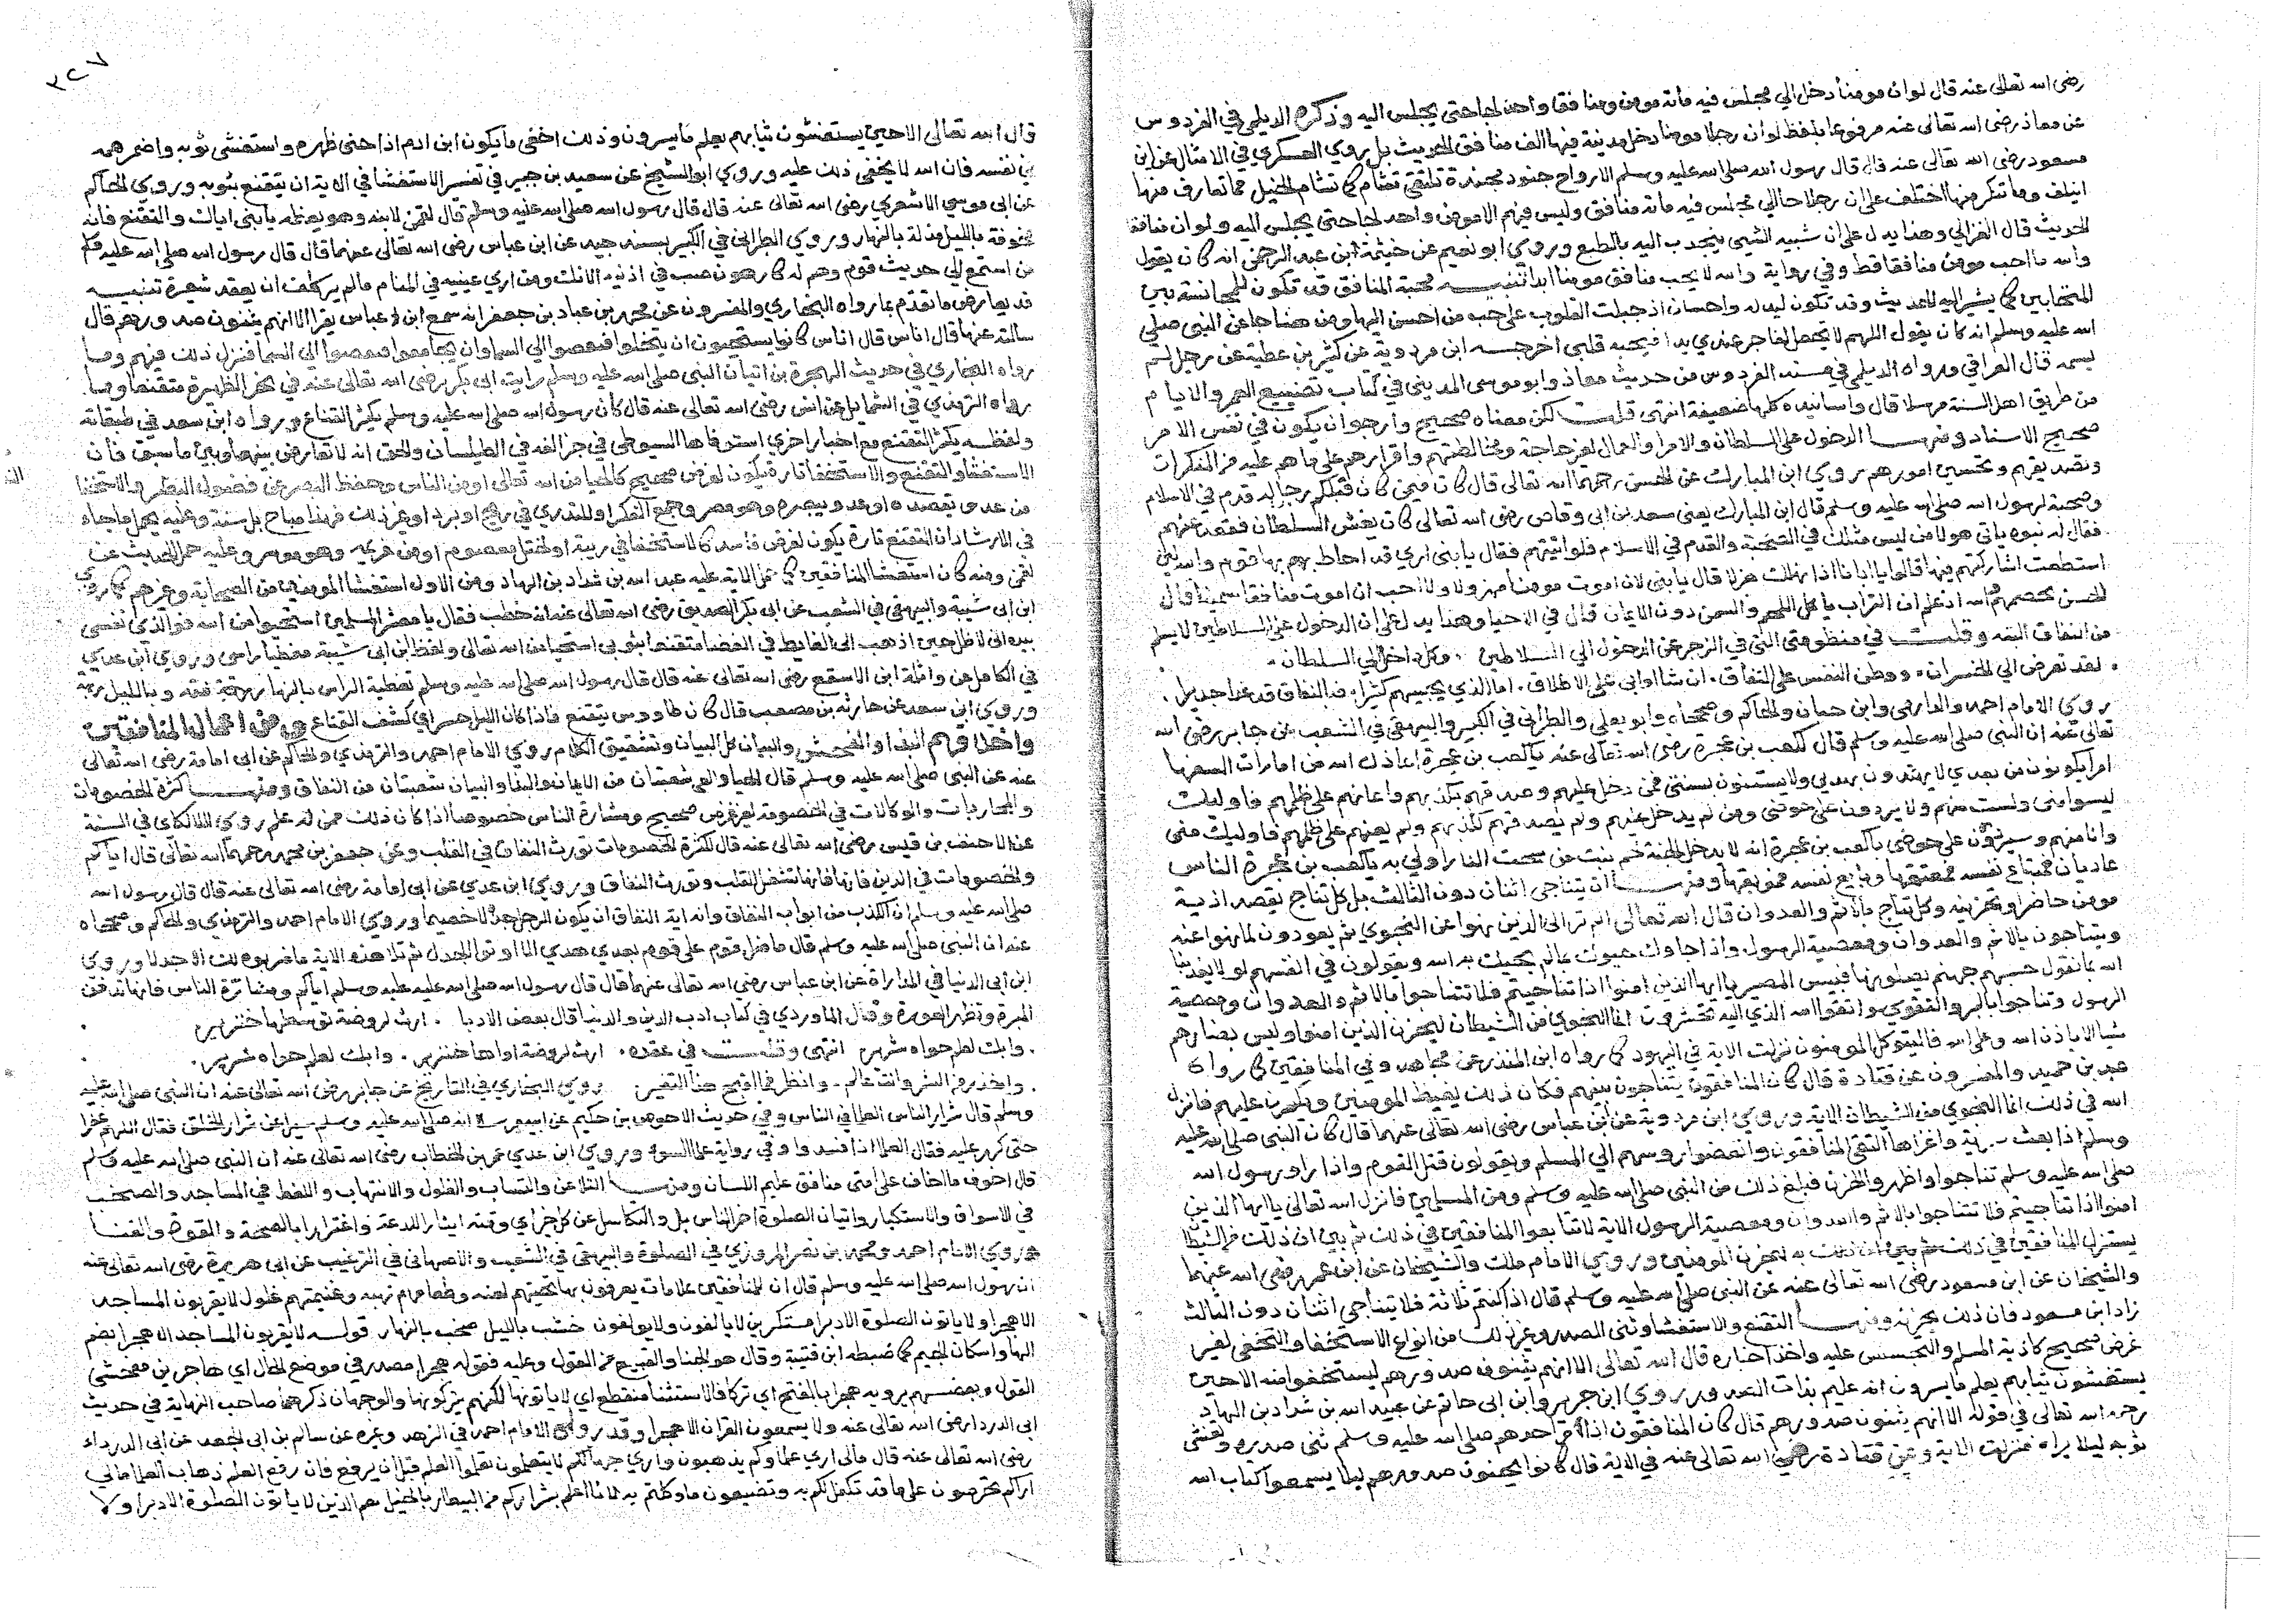 رضى الله تعالى عنه قال لو ان مومنا دخل الي مجلس فيه مائة مومن ومنافق واحد لجا حتى يجلس اليه وذكره الديلمي في الفردوس
عن معاذ رضى الله تعالى عنه مرفوعا بلفظ لو ان رجلا مومنا دخل مدينة فيها الف منافق الحديث بل روي العسكري في الامثال عن ابن
مسعود رضى الله تعالى عنه قال قال رسول الله صلى الله عليه وسلم الارواح جنود مجندة تلتقي تتشام كما تتشام الخيل فما تعارف منها
ايتلف وما تناكر منها اختلف فلو ان رجلا جا الي مجلس فيه مائة منافق وليس فيهم الا مومن واحد لجا حتى يجلس اليه ولو ان منافقا
الحديث قال الغزالي وهذا يدل على ان شبيه الشي ينجذب اليه بالطبع وروي ابو نعيم عن خيثمة ابن عبد الرحمن انه كان يقول
والله ما احب مومن منافقا قط وفي رواية والله لا يحب منافق مومنا ابدا تنبيه محبة المنافق قد تكون للمجانسة بين
المتحابين كما يشير اليه الحديث وقد تكون ليد له واحسان اذ جبلت القلوب على حب من احسن اليها ومن هنا جا عن النبي صلى
الله عليه وسلم انه كان يقول اللهم لا تجعل لفاجر عندي يدا فيحبه قلبي اخرجه ابن مردوية عن كثير بن عطية عن رجل لم
يسمه قال العراقي ورواه الديلمي في مسند الفردوس من حديث معاذ وابو موسى المديني في كتاب تضييع العمر والايام
من طريق اهل السنة مرسلا قال واسانيده كلها ضعيفة انتهى قلت لكن معناه صحيح وارجوا ان يكون في نفس الامر
صحيح الاسناد ومنها الدخول على السلطان والامرا والعمال لغير حاجة ومخالطتهم واقرارهم على ما هو عليه من المنكرات
وتصديقهم وتحسين امورهم روي ابن المبارك عن الحسن رحمهما الله تعالى قال كان فيمن كان قبلكم رجل له قدم في الاسلام
وصحبة لرسول الله صلى الله عليه وسلم قال ابن المبارك يعني سعد بن ابي وقاص رضى الله تعالى كان يغشى السلطان فقعد عنهم
فقال له بنوه ياتي هولا من ليس مثلك في الصحبة والقدم في الاسلام فلو اتيتهم فقال يا بني اري قد احاط بهم بها قوم والله لين
استطعت اشاركتهم فيها قالوا يا ابانا اذا نهلك هزلا قال يا بني لان اموت مومنا مهزولا ولا احب ان اموت منافقا سمينا قال
الحسن خصمهم والله اذ علم ان التراب ياكل اللحم والسمن دون الايمان قال في الاحيا وهذا يدل على ان الدخول على السلاطين لا يسلم
من النفاق البتة وقلت في منظومتي التي في الزجر عن الدخول الي السلاطين وكل داخل الي السلطان
لقد تعرض الي الخسران ووطن النفس على النفاق ان شا او ابى على الاطلاق اما الذي يجيهم كثيرا فبالنفاق قد غدا جديرا
روي الامام احمد والدارمي وابن حبان والحاكم وصححاه وابو يعلى والطبراني في الكبير والبيهقي في الشعب عن جابر رضى الله
تعالى عنه ان النبي صلى الله عليه وسلم قال لكعب بن عجرة رضى الله تعالى عنه ياكعب بن عجرة اعاذك الله من امارات السفها
امرا يكونون من بعدي لا يهتدون بهديي ولا يستنون بسنتي فمن دخل عليهم وصدقهم بكذبهم واعانهم على ظلمهم فاوليك
ليسوا مني ولست منهم ولا يردون على حوضي ومن لم يدخل عليهم ولم يصدقهم بكذبهم ولم يعنهم على ظلمهم فاوليك مني
وانا منهم وسيردون على حوضي ياكعب بن عجرة انه لا يدخل الجنة لحم نبت من سحت النار اولى به ياكعب بن عجرة الناس
غاديان فمبتاع نفسه فمعتقها وبايع نفسه فموبقها ومنها ان يتناجى اثنان دون الثالث بل كل تناج يقصد اذية
مومن حاضر او تحزينه وكل تناج بالاثم والعدوان قال الله تعالى الم تر الى الذين نهوا عن النجوي ثم يعودون لما نهوا عنه
ويتناجون بالاثم والعدوان ومعصية الرسول واذا جاوك حيوك بما لم يحيك به الله ويقولون في انفسهم لولا يعذبنا
الله بما نقول حسبهم جهنم يصلونها فبيس المصير يا ايها الذين امنوا اذا تناجيتم فلا تتناجوا بالاثم والعدوان ومعصية
الرسول وتناجوا بالبر والتقوي واتقوا الله الذي اليه تحشرون انما النجوي من الشيطان ليحزن الذين امنوا وليس بضارهم
شيا الا باذن الله وعلى الله فليتوكل المومنون نزلت الاية في اليهود كما رواه ابن المنذر عن مجاهد وفي المنافقين كما رواه
عبد بن حميد والمفسرون عن قتادة قال كان المنافقون يتناجون بينهم فكان ذلك يغيظ المومنين ويكبر عليهم فانزل
الله في ذلك انما النجوي من الشيطان الاية وروي ابن مردوية عن ابن عباس رضى الله تعالى عنهما قال كان النبي صلى الله عليه
وسلم اذا بعث سرية واغزاها التقى المنافقون وانغضوا روسهم الي المسلم ويقولون قتل القوم واذا راو رسول الله
صلى الله عليه وسلم تناجوا واظهروا الحزن فبلغ ذلك من النبي صلى الله عليه وسلم ومن المسلمين فانزل الله تعالى يا ايها الذين
امنوا اذا تناجيتم فلا تتناجوا بالاثم والعدوان ومعصية الرسول الاية لا تتابعوا المنافقين في ذلك ثم بين ان ذلك من الشيطان
ليحزن المومنين وروي الامام ملك والشيخان عن ابن عمر رضى الله عنهما
والشيخان عن ابن مسعود رضى الله تعالى عنه عن النبي صلى الله عليه وسلم قال اذا كنتم ثلاثة فلا يتناجى اثنان دون الثالث
زاد ابن مسعود فان ذلك يحزنه ومنها التقنع والاستغشا وثني الصدر وغير ذلك من انواع الاستخفا والتخفي لغير
غرض صحيح كاذية المسلم والتجسس عليه واخذ اخباره قال الله تعالى الا انهم يثنون صدورهم ليستخفوا منه الا حين
يستغشون ثيابهم يعلم ما يسرون انه عليم بذات الصدور روي ابن جرير وابن ابي حاتم عن عبد الله بن شداد بن الهاد
رحمه الله تعالى في قوله الا انهم يثنون صدورهم قال كان المنافقون اذا مر احدهم صلى الله عليه وسلم ثنى صدره وتغشى
ثوبه ليلا يراه فنزلت الاية وعن قتادة رضى الله تعالى عنه في الاية قال كانوا يحنون صدورهم ليلا يسمعوا كتاب الله
٣٢٧
قال الله تعالى الا حين يستغشون ثيابهم يعلم ما يسرون وذلك اخفى ما يكون ابن ادم اذا حنى ظهره واستغشى ثوبه واضمر همه
في نفسه فان الله لا يخفى ذلك عليه وروي ابو الشيخ عن سعيد بن جبير في تفسير الاستغشا في الاية ان يتقنع بثوبه وروي الحاكم
عن ابي موسي الاشعري رضى الله تعالى عنه قال قال رسول الله صلى الله عليه وسلم قال لقمن لابنه وهو يعظه يابني اياك والتقنع فانه
مخوفة بالليل مذلة بالنهار وروي الطبراني في الكبير بسند جيد عن ابن عباس رضى الله تعالى عنهما قال قال رسول الله صلى الله عليه وسلم
من استمع الي حديث قوم وهم له كارهون صب في اذنيه الانك ومن اري عينيه في المنام مالم ير كلف ان يعقد شعيرة تنبيه
قد يعارض ما تقدم بما رواه البخاري والمفسرون عن محمد بن عباد بن جعفر انه سمع ابن عباس يقرا الا انهم يثنون صدورهم قال
سالته عنها قال اناس قال اناس كانوا يستحيون ان يتخلوا فيفضوا الي السما وان يجامعوا فيفضوا الي السما فنزل ذلك فيهم وما
رواه البخاري في حديث الهجرة من اتيان النبي صلى الله عليه وسلم رايته ابي بكر رضى الله تعالى عنه في نحر الظهيرة متقنعا وما
رواه الترمذي في الشمايل عن انس رضى الله تعالى عنه قال كان رسول الله صلى الله عليه وسلم يكثر القناع ورواه ابن سعد في طبقاته
ولفظه يكثر التقنع مع اخبار اخري استوفاها السيوطي في جز الفه في الطيلسان والحق انه لا تعارض بينها وبين ما سبق فان
الاستغشا والتقنع والاستخفا تارة يكون لغرض صحيح كالحيا من الله تعالى او من الناس وحفظ البصر عن فضول النظر والاستخفا
من عدو يقصده او عدو يبصره وهو مصر وجمع الفكر او للتدري في ريح او برد او غير ذلك فهذا مباح بل سنة وعليه يحمل ما جاء
في الارشاد ان التقنع تارة يكون لغرض فاسد كالاستخفا في ريبة او لختل معصوم او من غريمه وهو موسر وعليه حمل الحديث عن
لقمن ومنه كان استغشا المنافقين كما حمل الاية عليه عبد الله بن شداد بن الهاد ومن الاول استغشا المومنين من الصحابة وغيرهم كما روي
ابن ابي شيبة والبيهقي في الشعب عن ابي بكر الصديق رضى الله تعالى عنه انه خطب فقال يا معشر المسلمين استحيوا من الله فو الذي نفسي
بيده اني لاظل حين اذهب الى الغايط في الفضا متقنعا بثوبي استحيا من الله تعالى ولفظ ابن ابي شيبة مغطيا راسي وروي ابن عدي
في الكامل عن واثلة ابن الاسقع رضى الله تعالى عنه قال قال رسول الله صلى الله عليه وسلم تغطية الراس بالنهار فقه وبالليل ريبة
وروي ابن سعد عن حارثة بن مصعب قال كان طاووس يتقنع فاذا كان الليل حسر اي كشف القناع ومن اعمال المنافقين
واخلاقهم البذاء والفحش والبيان كل البيان وتشقيق الكلام روي الامام احمد والترمذي والحاكم عن ابي امامة رضى الله تعالى
عنه عن النبي صلى الله عليه وسلم قال الحيا والعي شعبتان من الايمان والبذا والبيان شعبتان من النفاق ومنها كثرة الخصومات
والمحاربات والوكالات في الخصومة لغير غرض صحيح ومشارة الناس خصوصا اذا كان ذلك ممن له علم روي اللالكائي في السنة
عن الاحنف بن قيس رضى الله تعالى عنه قال كثرة الخصومات تورث النفاق في القلب وعن جعفر بن محمد رحمهما الله تعالى قال اياكم
والخصومات في الدين فانها تشغل القلب وتورث النفاق وروي ابن عدي عن ابي امامة رضى الله تعالى عنه قال قال رسول الله
صلى الله عليه وسلم ان الكذب من ابواب النفاق وانه اية النفاق ان يكون الرجل جدلا خصيما وروي الامام احمد والترمذي والحاكم وصححاه
عنه ان النبي صلى الله عليه وسلم قال ما ضل قوم على قوم بعدي هدي الا اوتوا الجدل ثم تلا هذه الاية ما ضربوه لك الا جدلا وروي
ابن ابي الدنيا في المداراة عن ابن عباس رضي الله تعالى عنهما قال قال رسول الله صلى الله عليه وسلم اياكم ومشارة الناس فانها تدفن
الغرة وتظهر العورة وقال الماوردي في كتاب ادب الدين والدنيا قال بعض الادبا ارث لروضة توسطها خنزير
وابك لعلم حواه شرير انتهى وقلت في عقده ارث لروضة اواها خنزير وابك لعلم حواه شرير
وما يذم الشر وانت عالم وانظر فما اقبح هذا التغيير روي البخاري في التاريخ عن جابر رضى الله تعالى عنه ان النبي صلى الله عليه
وسلم قال شرار الناس العلما في الناس وفي حديث الاحوص بن حكيم عن ابيه مرسلا انه صلى الله عليه وسلم سيل عن شرار الخلق فقال اللهم غفرا
حتى كرر عليه فقال العلما اذا فسدوا وفي رواية علما السوء وروي ابن عدي عمر بن الخطاب رضى الله تعالى عنه ان النبي صلى الله عليه وسلم
قال اخوف ما اخاف على امتى منافق عليم اللسان ومنها التلاعن والتساب والغلول والانتهاب واللغط في المساجد والصخب
في الاسواق والاستكبار واتيان الصلوة اخر الناس بل والتكاسل عن كل خير اي وقته ايثار للدعة واغترارا بالصحة والقوة والغنا
وروي الامام احمد ومحمد بن نصر المروزي في الصلوة والبيهقي في الشعب والاصبهاني في الترغيب عن ابي هريرة رضى الله تعالى عنه
ان رسول الله صلى الله عليه وسلم قال ان للمنافقين علامات يعرفون بها تحيتهم لعنه وطعامهم نهبه وغنيمتهم غلول لا يقربون المساجد
الا هجرا ولا ياتون الصلوة الا دبرا مستكبرين لا يالفون ولا يولفون خشب بالليل صخب بالنهار قوله لا يقربون المساجد الا هجرا بضم
الها واسكان الجيم كما ضبطه ابن قتيبة وقال هو الخنا والقبيح من القول وعليه فقوله هجرا مصدر في موضع الحال اي هاجرين متفحشي
القول وبعضهم يرويه هجرا بالفتح اي تركا فالاستثنا منقطع اي لا ياتونها لكنهم يتركونها والوجهان ذكرهما صاحب النهاية في حديث
ابي الدردا رضى الله تعالى عنه ولا يسمعون القران الا هجرا وقد رواه الامام احمد في الزهد وغيره عن سالم بن ابي الجعد عن ابي الدرداء
رضى الله تعالى عنه قال مالى اري علماوكم يذهبون واري جهالكم لا يتعلمون تعلموا العلم قبل ان يرفع فان رفع العلم ذهاب العلما مالي
اراكم تحرصون على ما قد تكفل لكم به وتضيعون ما وكلتم به لانا اعلم بشراركم من البيطار بالخيل هم الذين لا ياتون الصلوة الا دبرا ولا